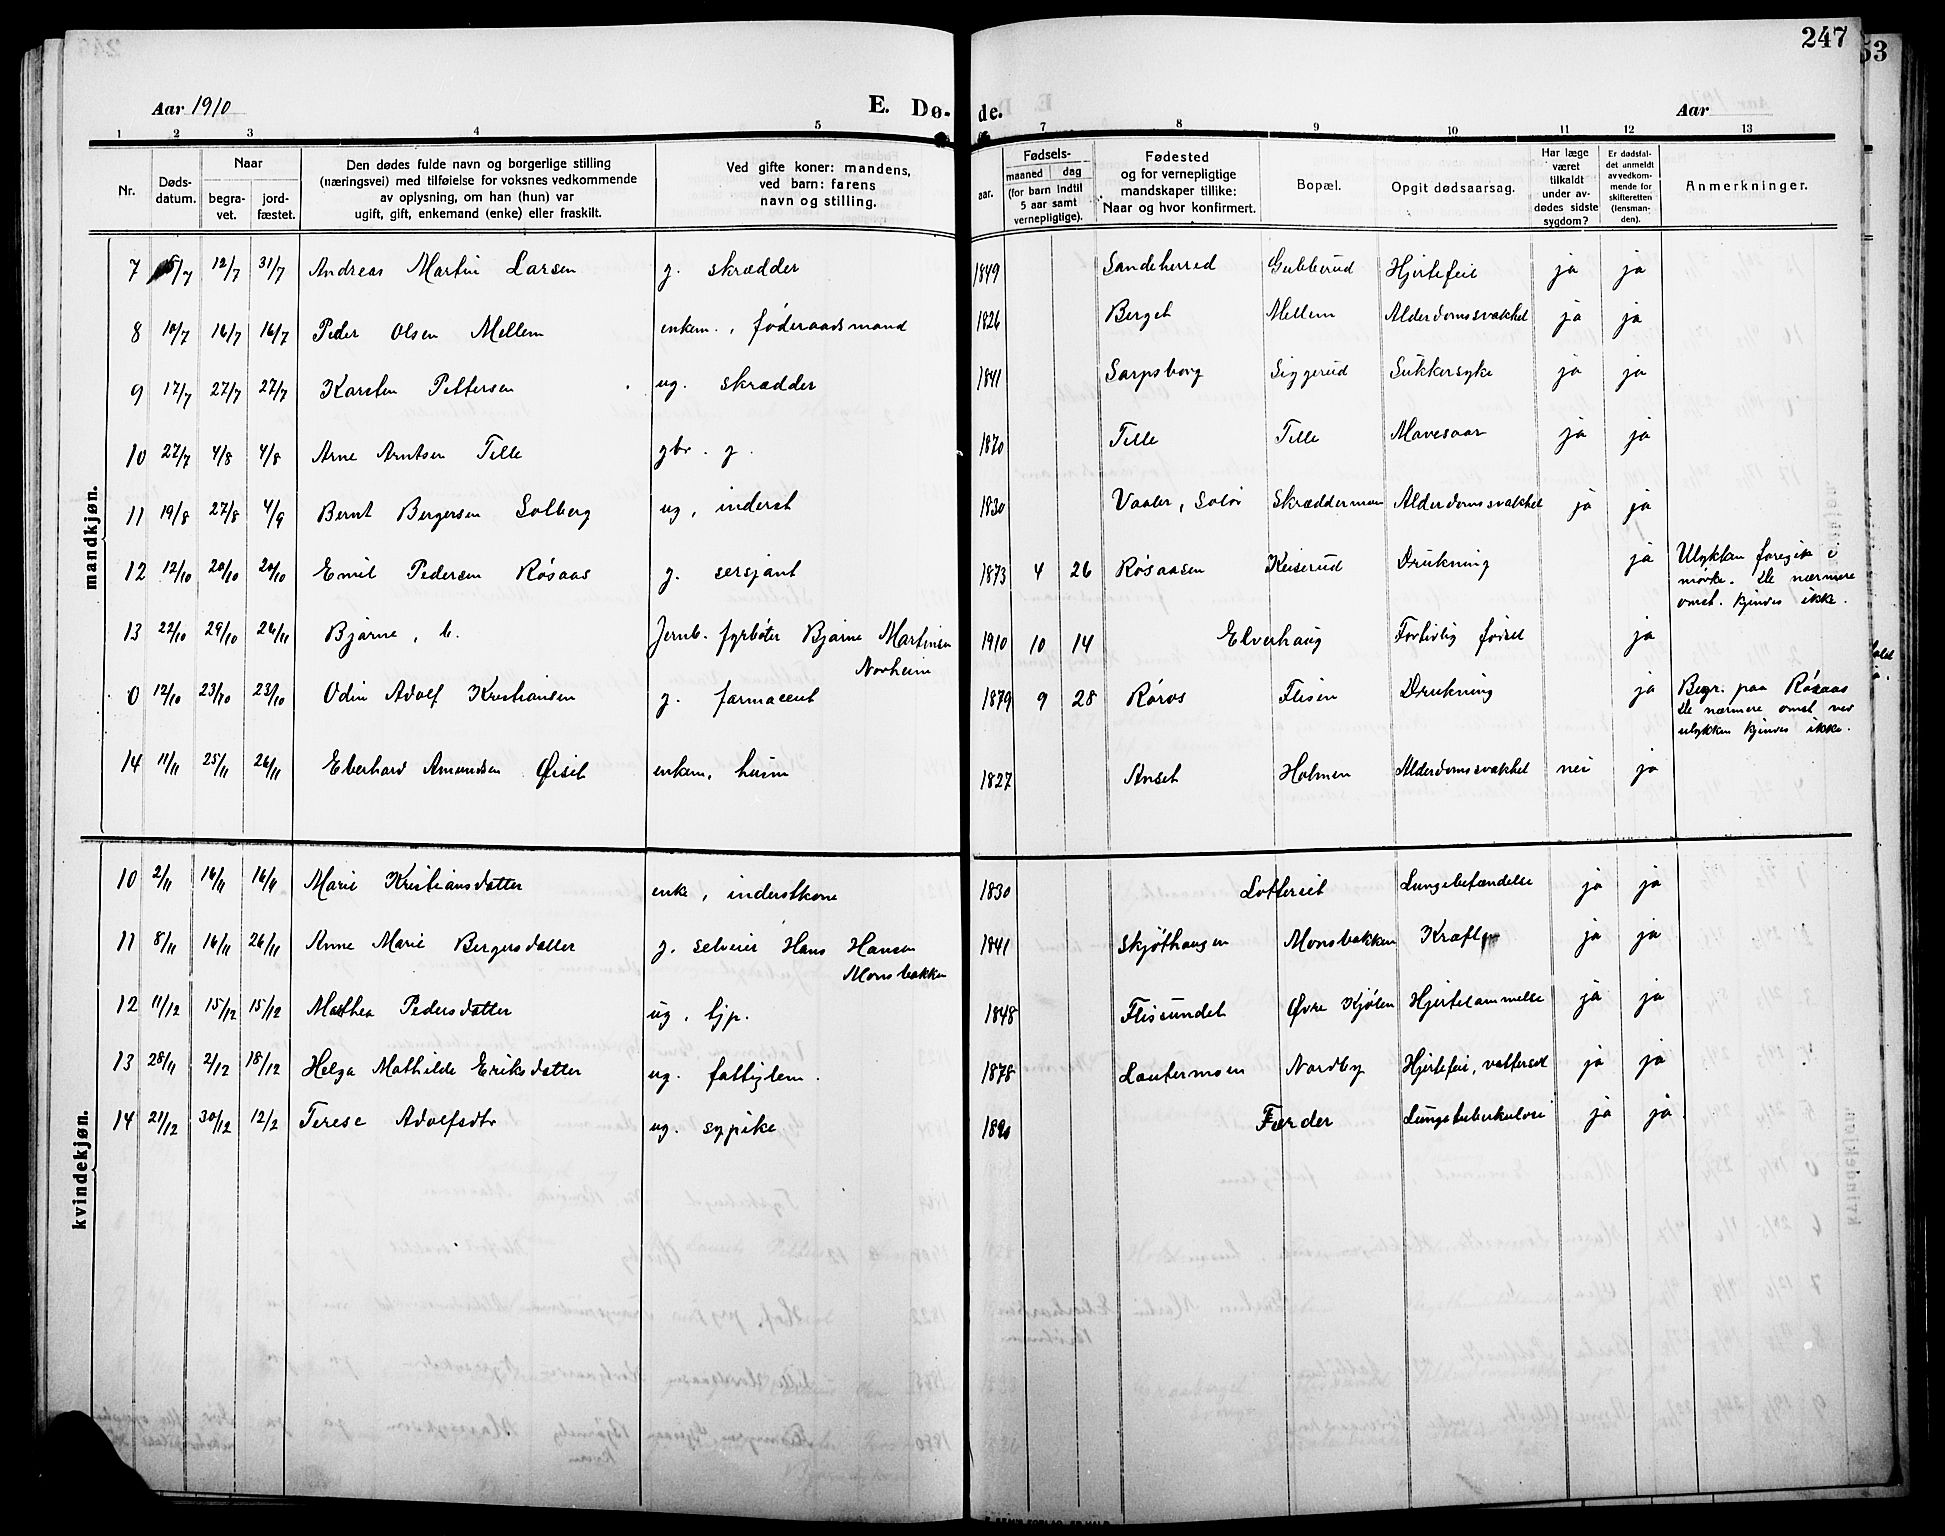 247
53
Aar 1910
E. Dø-
de.
Aar
1 2 3 4 5 7 8 9 10 11 12 13
Nr.
Døds-
datum.
Naar
begra-
vet.
jord-
fæstet.
Den dødes fulde navn og borgerlige stilling
(næringsvei) med tilføielse for voksnes vedkommende
av oplysning, om han (hun) var
ugift, gift, enkemand (enke) eller fraskilt.
Ved gifte koner: mandens,
ved barn: farens
navn og stilling.
aar.
Fødsels-
maaned dag
(for barn indtil
5 aar samt
vernepligtige).
Fødested
og for vernepligtige
mandskaper tillike:
Naar og hvor konfirmert.
Bopæl.
Opgit dødsaarsag.
Har læge
været
tilkaldt
under av-
dødes sidste
sygdom?
Er dødsfal-
det anmeldt
av vedkom-
mende for
skifteretten
(lensman-
den).
Anmerkninger.
mandkjøn.
7 5/7 12/7 31/7 Andreas Martin Larsen g. skrædder 1849 Sandeherred Gubberud Hjertefeil ja ja
8 10/7 16/7 16/7 Peder Olsen Mellem enkem., føderaadsmand 1826 Berget Mellem Alderdomssvakhet ja ja
9 17/7 27/7 27/7 Karsten Pettersen ug. skrædder 1841 Sarpsborg Siggerud Sukkersyke ja ja
10 27/7 4/8 4/8 Arne Arntsen Telle gbr. g. 1870 Telle Telle Mavesaar ja ja
11 19/8 27/8 4/9 Bernt Bergersen Solberg ug, inderst 1830 Vaaler, Solør Skrædderman Alderdomssvakhet ja ja
12 12/10 20/10 20/10 Emil Pedersen Røsaas g. sersjant 1873 4 26 Røsaasen Keiserud Drukning ja Ulykken foregik i
mørke. De nærmere
omst. kjendes ikke.
13 22/10 29/10 26/11 Bjarne, b. Jernb. fyrbøter Bjarne Martinsen
Norheim
1910 10 14 Elverhaug Fortidlig fødsel ja
0 12/10 23/10 23/10 Odin Adolf Kristiansen g. farmaceut 1879 9 28 Røros Flisen Drukning ja Begr. paa Røsaas
De nærmere omst ved
ulykken kjendes ikke.
14 11/11 25/11 26/11 Eberhard Amundsen Øiset enkem, husm 1827 Anset Holmen Alderdomssvakhet nei ja
kvindekjøn.
10 2/11 16/11 16/11 Marie Kristiansdatter enke, inderstkone 1830 Lotterset Lungebetændelse ja ja
11 8/11 16/11 26/11 Anne Marie Bergersdatter g. selveier Hans Hansen
Monsbakken
1841 Skjøthaugen Monsbakken Kræft ja ja
12 11/12 15/12 15/12 Mathea Pedersdatter ug, tjp. 1848 Flissundet Øvre Kjølen Hjertelammelse ja ja
13 28/11 2/12 18/12 Helga Mathilde Eriksdatter ug. fattiglem. 1878 Lautermoen Nordby Hjertefeil, vattersot ja ja
14 21/12 30/12 12/2 Terese Adolfsdtr ug. sypike 1890 Færder Lungetuberkulose ja ja